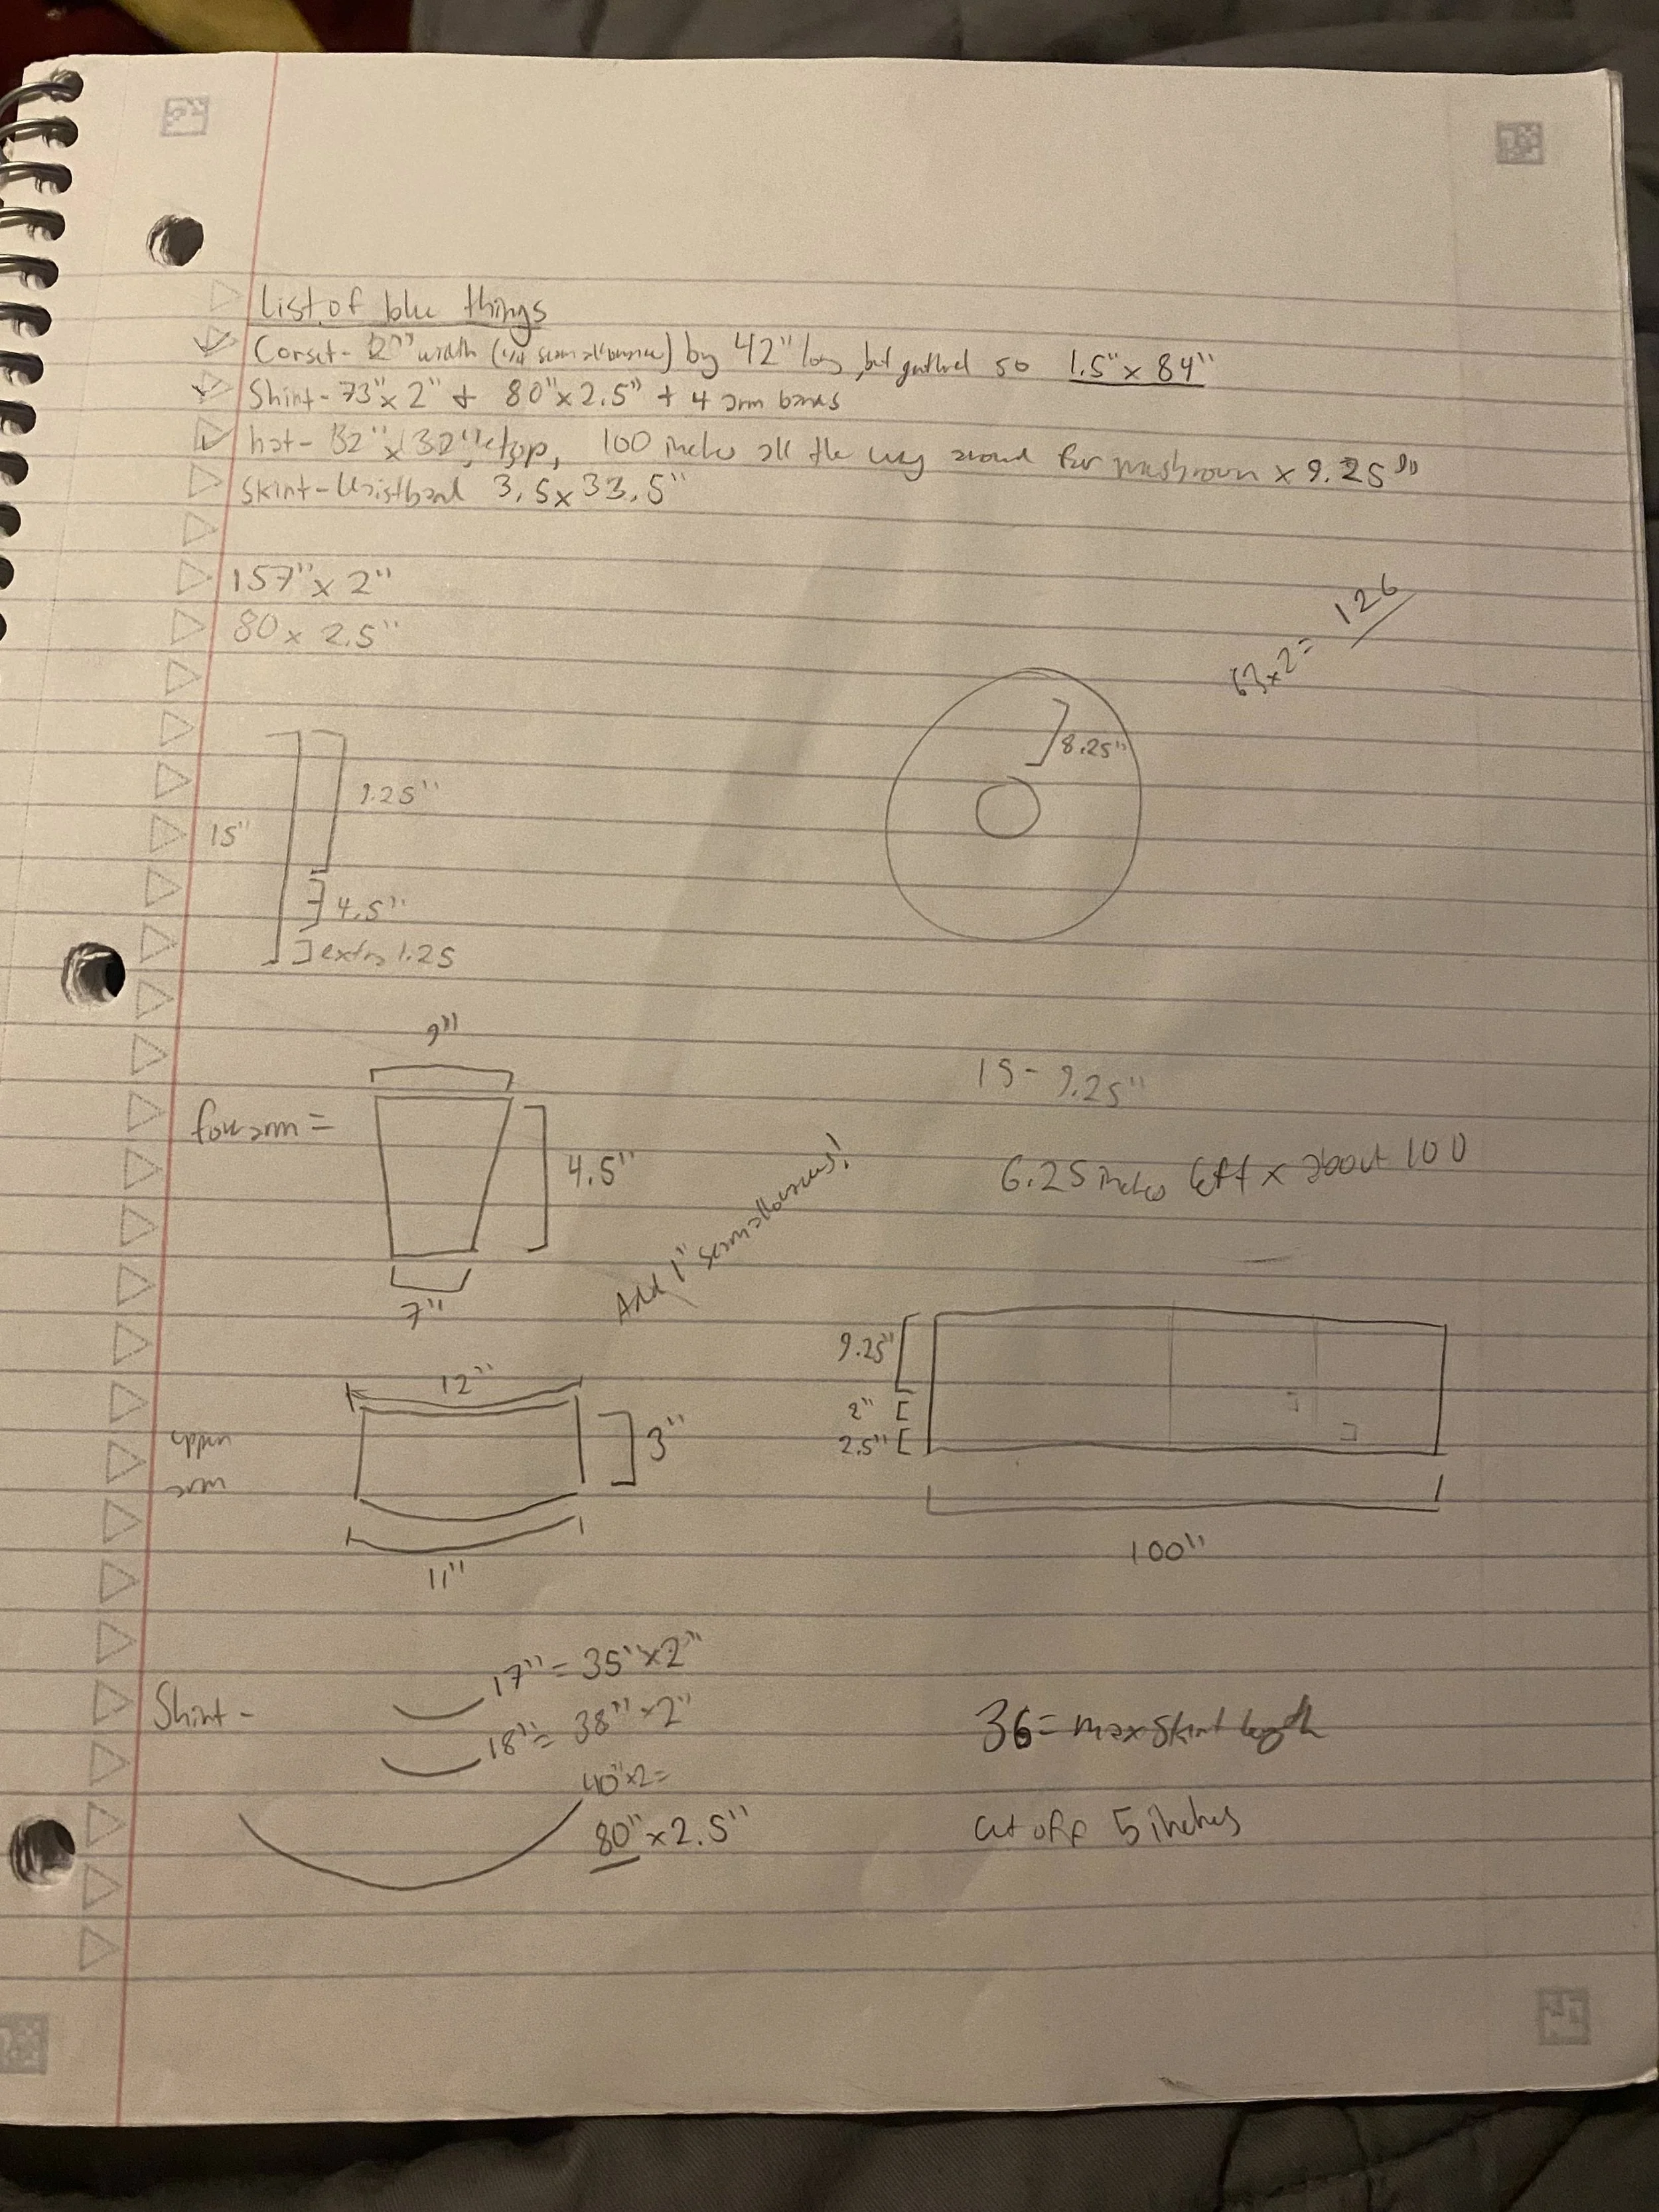 List of blue things
Corset - 2" width (1/4 seam allowance) by 42" long, but gathered so 1.5" x 84"
Shirt - 73" x 2" + 80" x 2.5" + 4 arm bands
hat - 32" x 32" top, 100 inches all the way around for mushroom x 9.25"
Skirt - Waistband 3.5 x 33.5"
157" x 2"
80 x 2.5"
63 x 2 = 126
8.25"
15"
9.25"
4.5"
extra 1.25
9"
15 - 9.25"
forearm =
4.5"
6.25 inches left x about 100
Add 1" seam allowances!
7"
12"
9.25"
upper
arm
3"
2"
2.5"
11"
100"
17" = 35" x 2"
Shirt -
18" = 38" x 2"
36 = max skirt length
40" x 2 =
80" x 2.5"
cut off 5 inches